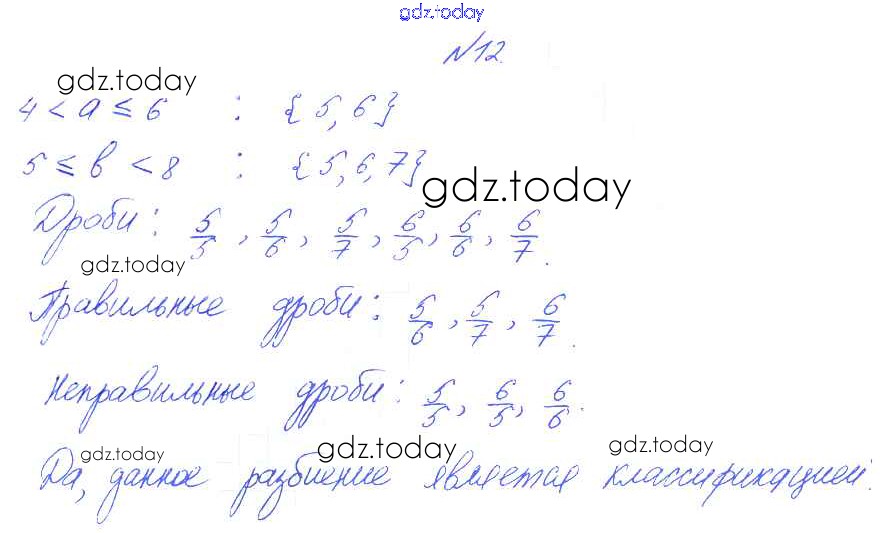 gdz.today
№12.
gdz.today
4 < a ≤ 6 : {5, 6}
5 ≤ b < 8 : {5, 6, 7}
gdz.today
Дроби: 5/5, 5/6, 5/7, 6/5, 6/6, 6/7.
gdz.today
Правильные дроби: 5/6, 5/7, 6/7.
Неправильные дроби: 5/5, 6/5, 6/6.
gdz.today gdz.today gdz.today
Да, данное разбиение является классификацией.